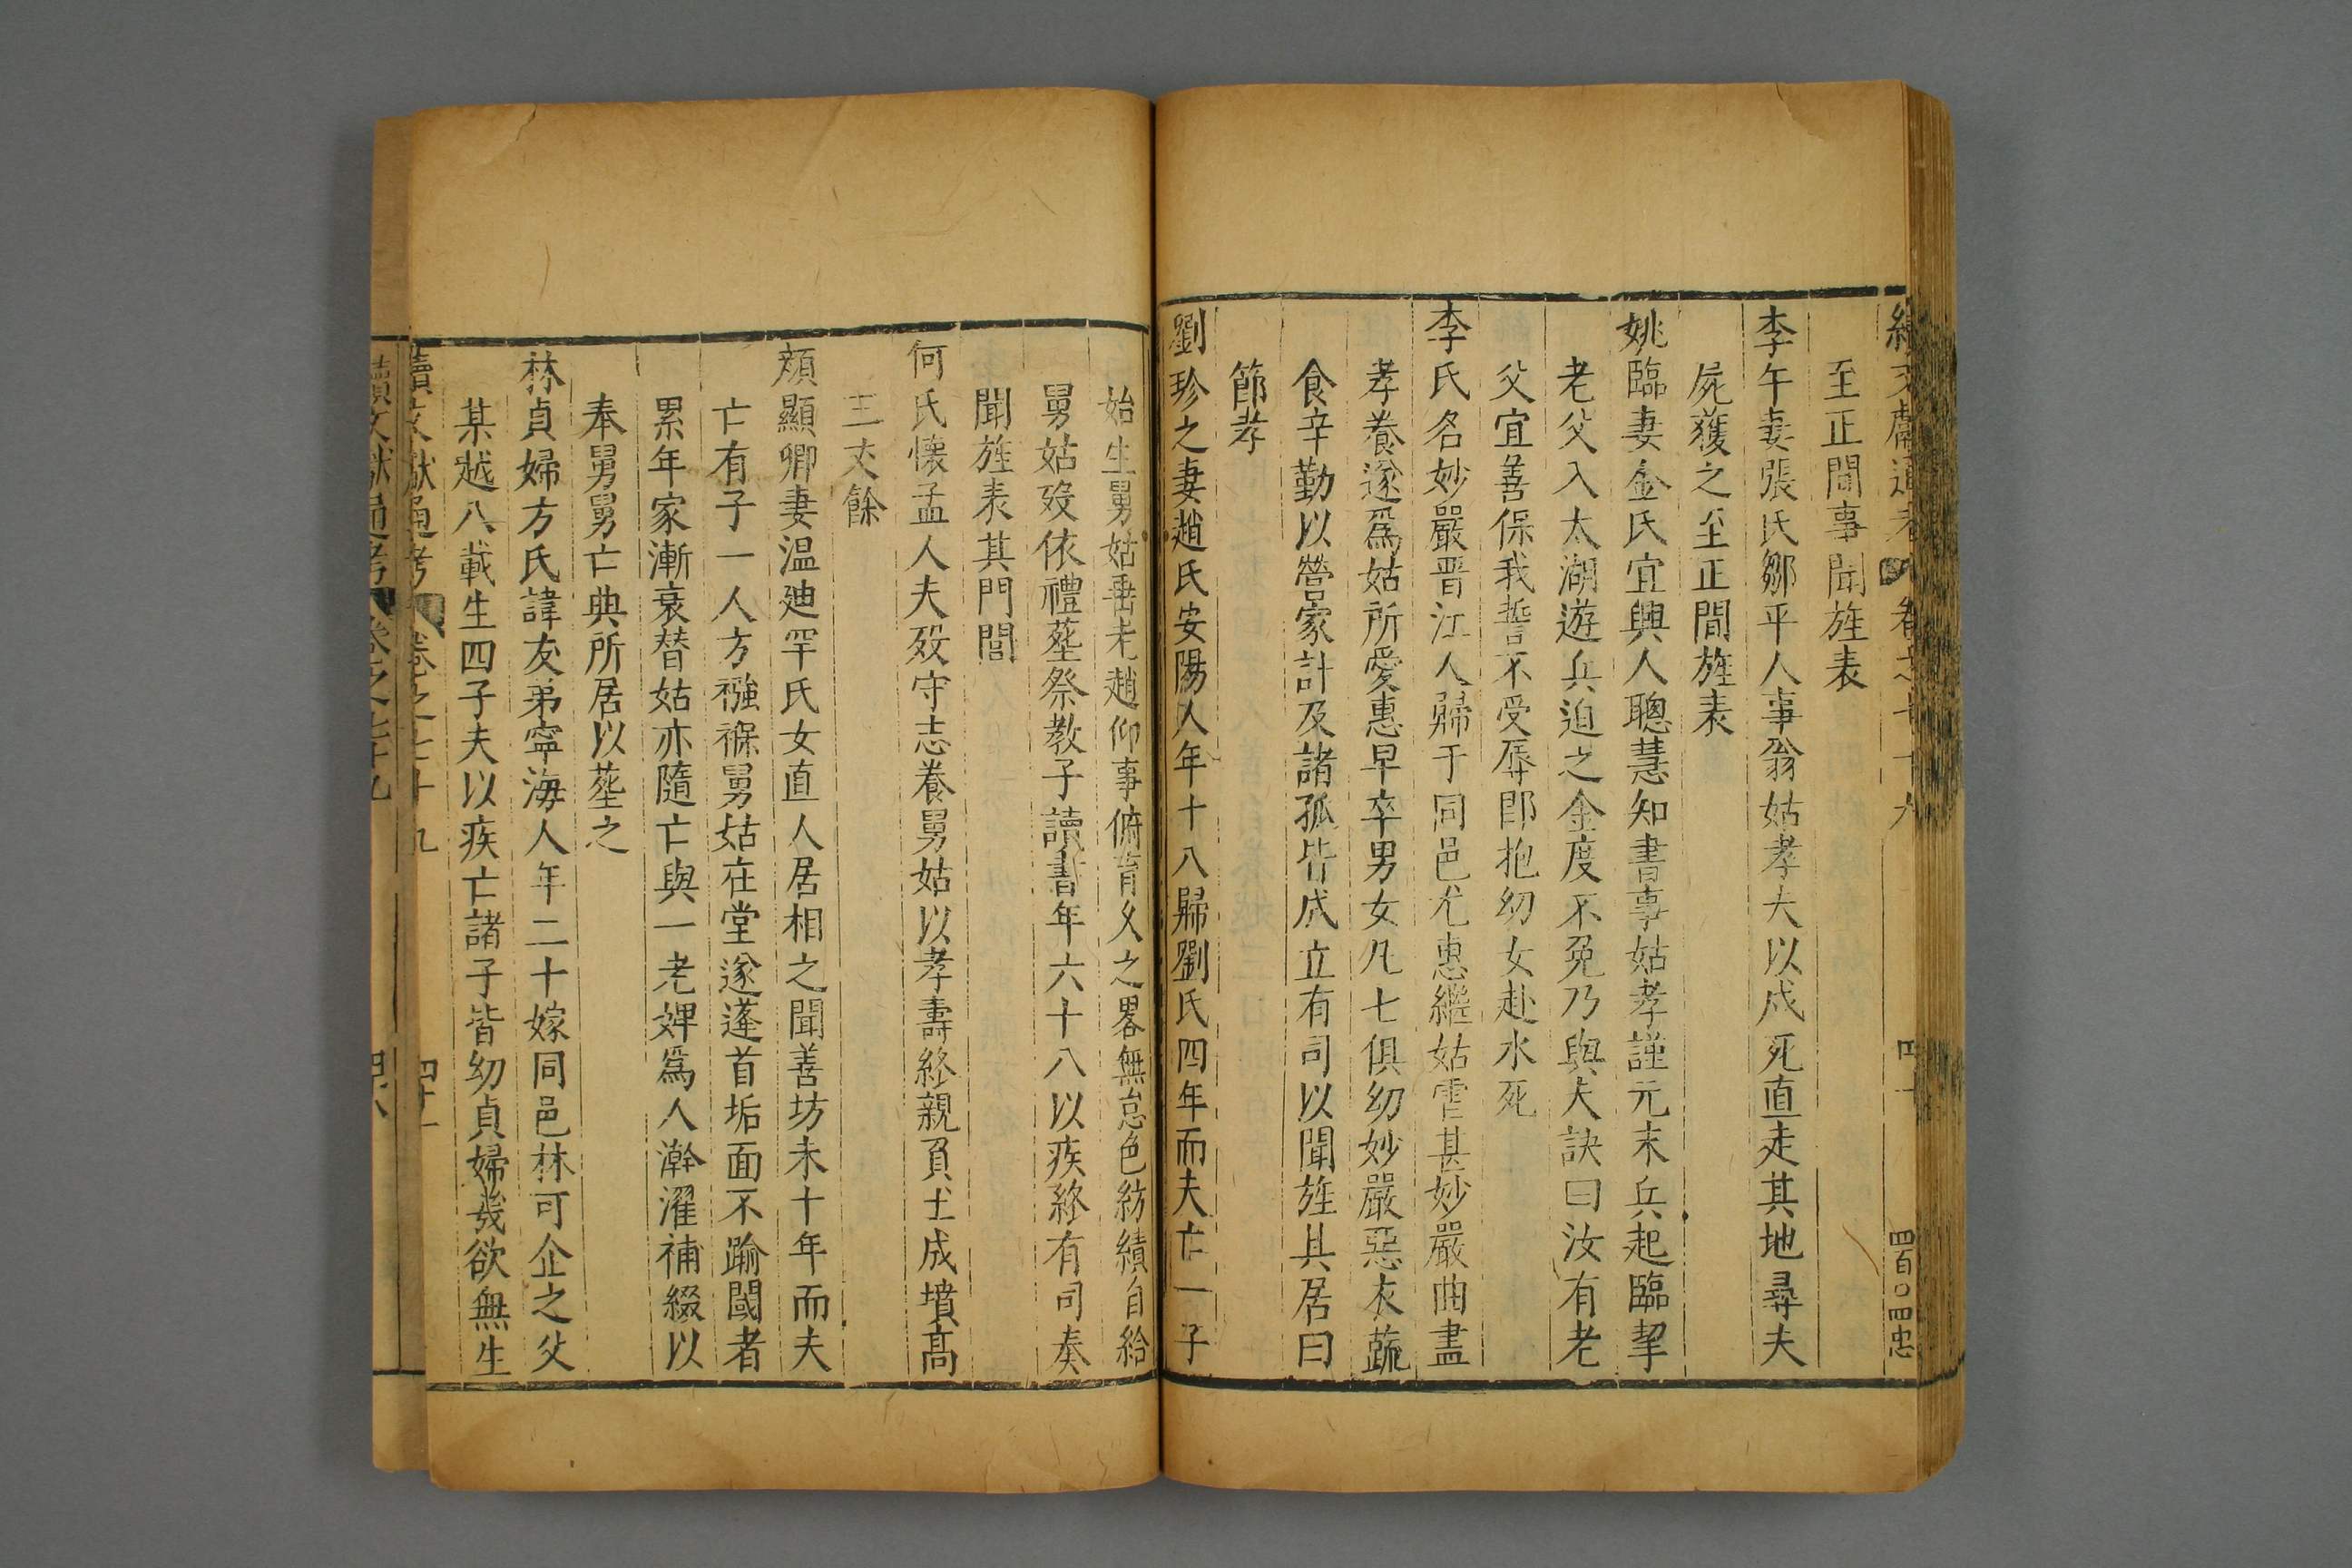 續文獻通考 卷之七十九 四十 四百〇四忠
至正間事聞旌表
李午妻張氏鄒平人事翁姑孝夫以戍死直走其地尋夫
屍獲之至正間旌表
姚臨妻金氏宜興人聰慧知書事姑孝謹元末兵起臨挈
老父入太湖遊兵迫之金度不免乃與夫訣曰汝有老
父宜善保我誓不受辱卽抱幼女赴水死
李氏名妙嚴晋江人歸于同邑尤惠繼姑雷甚妙嚴曲盡
孝養遂爲姑所愛惠早卒男女凡七俱幼妙嚴惡衣蔬
食辛勤以營家計及諸孤皆成立有司以聞旌其居曰
節孝
劉珍之妻趙氏安陽人年十八歸劉氏四年而夫亡一子
始生舅姑垂老趙仰事俯育久之畧無怠色紡績自給
舅姑歿依禮塟祭教子讀書年六十八以疾終有司奏
聞旌表其門閭
何氏懷孟人夫歿守志養舅姑以孝壽終親負土成墳高
三丈餘
頛顯卿妻温廸罕氏女直人居相之聞善坊未十年而夫
亡有子一人方襁褓舅姑在堂遂蓬首垢面不踰閾者
累年家漸衰替姑亦隨亡與一老婢爲人澣濯補綴以
奉舅舅亡典所居以塟之
林貞婦方氏諱友弟寧海人年二十嫁同邑林可企之父
某越八載生四子夫以疾亡諸子皆幼貞婦幾欲無生
續文獻通考 卷之七十九 四十一
續文獻通考 卷之七十九